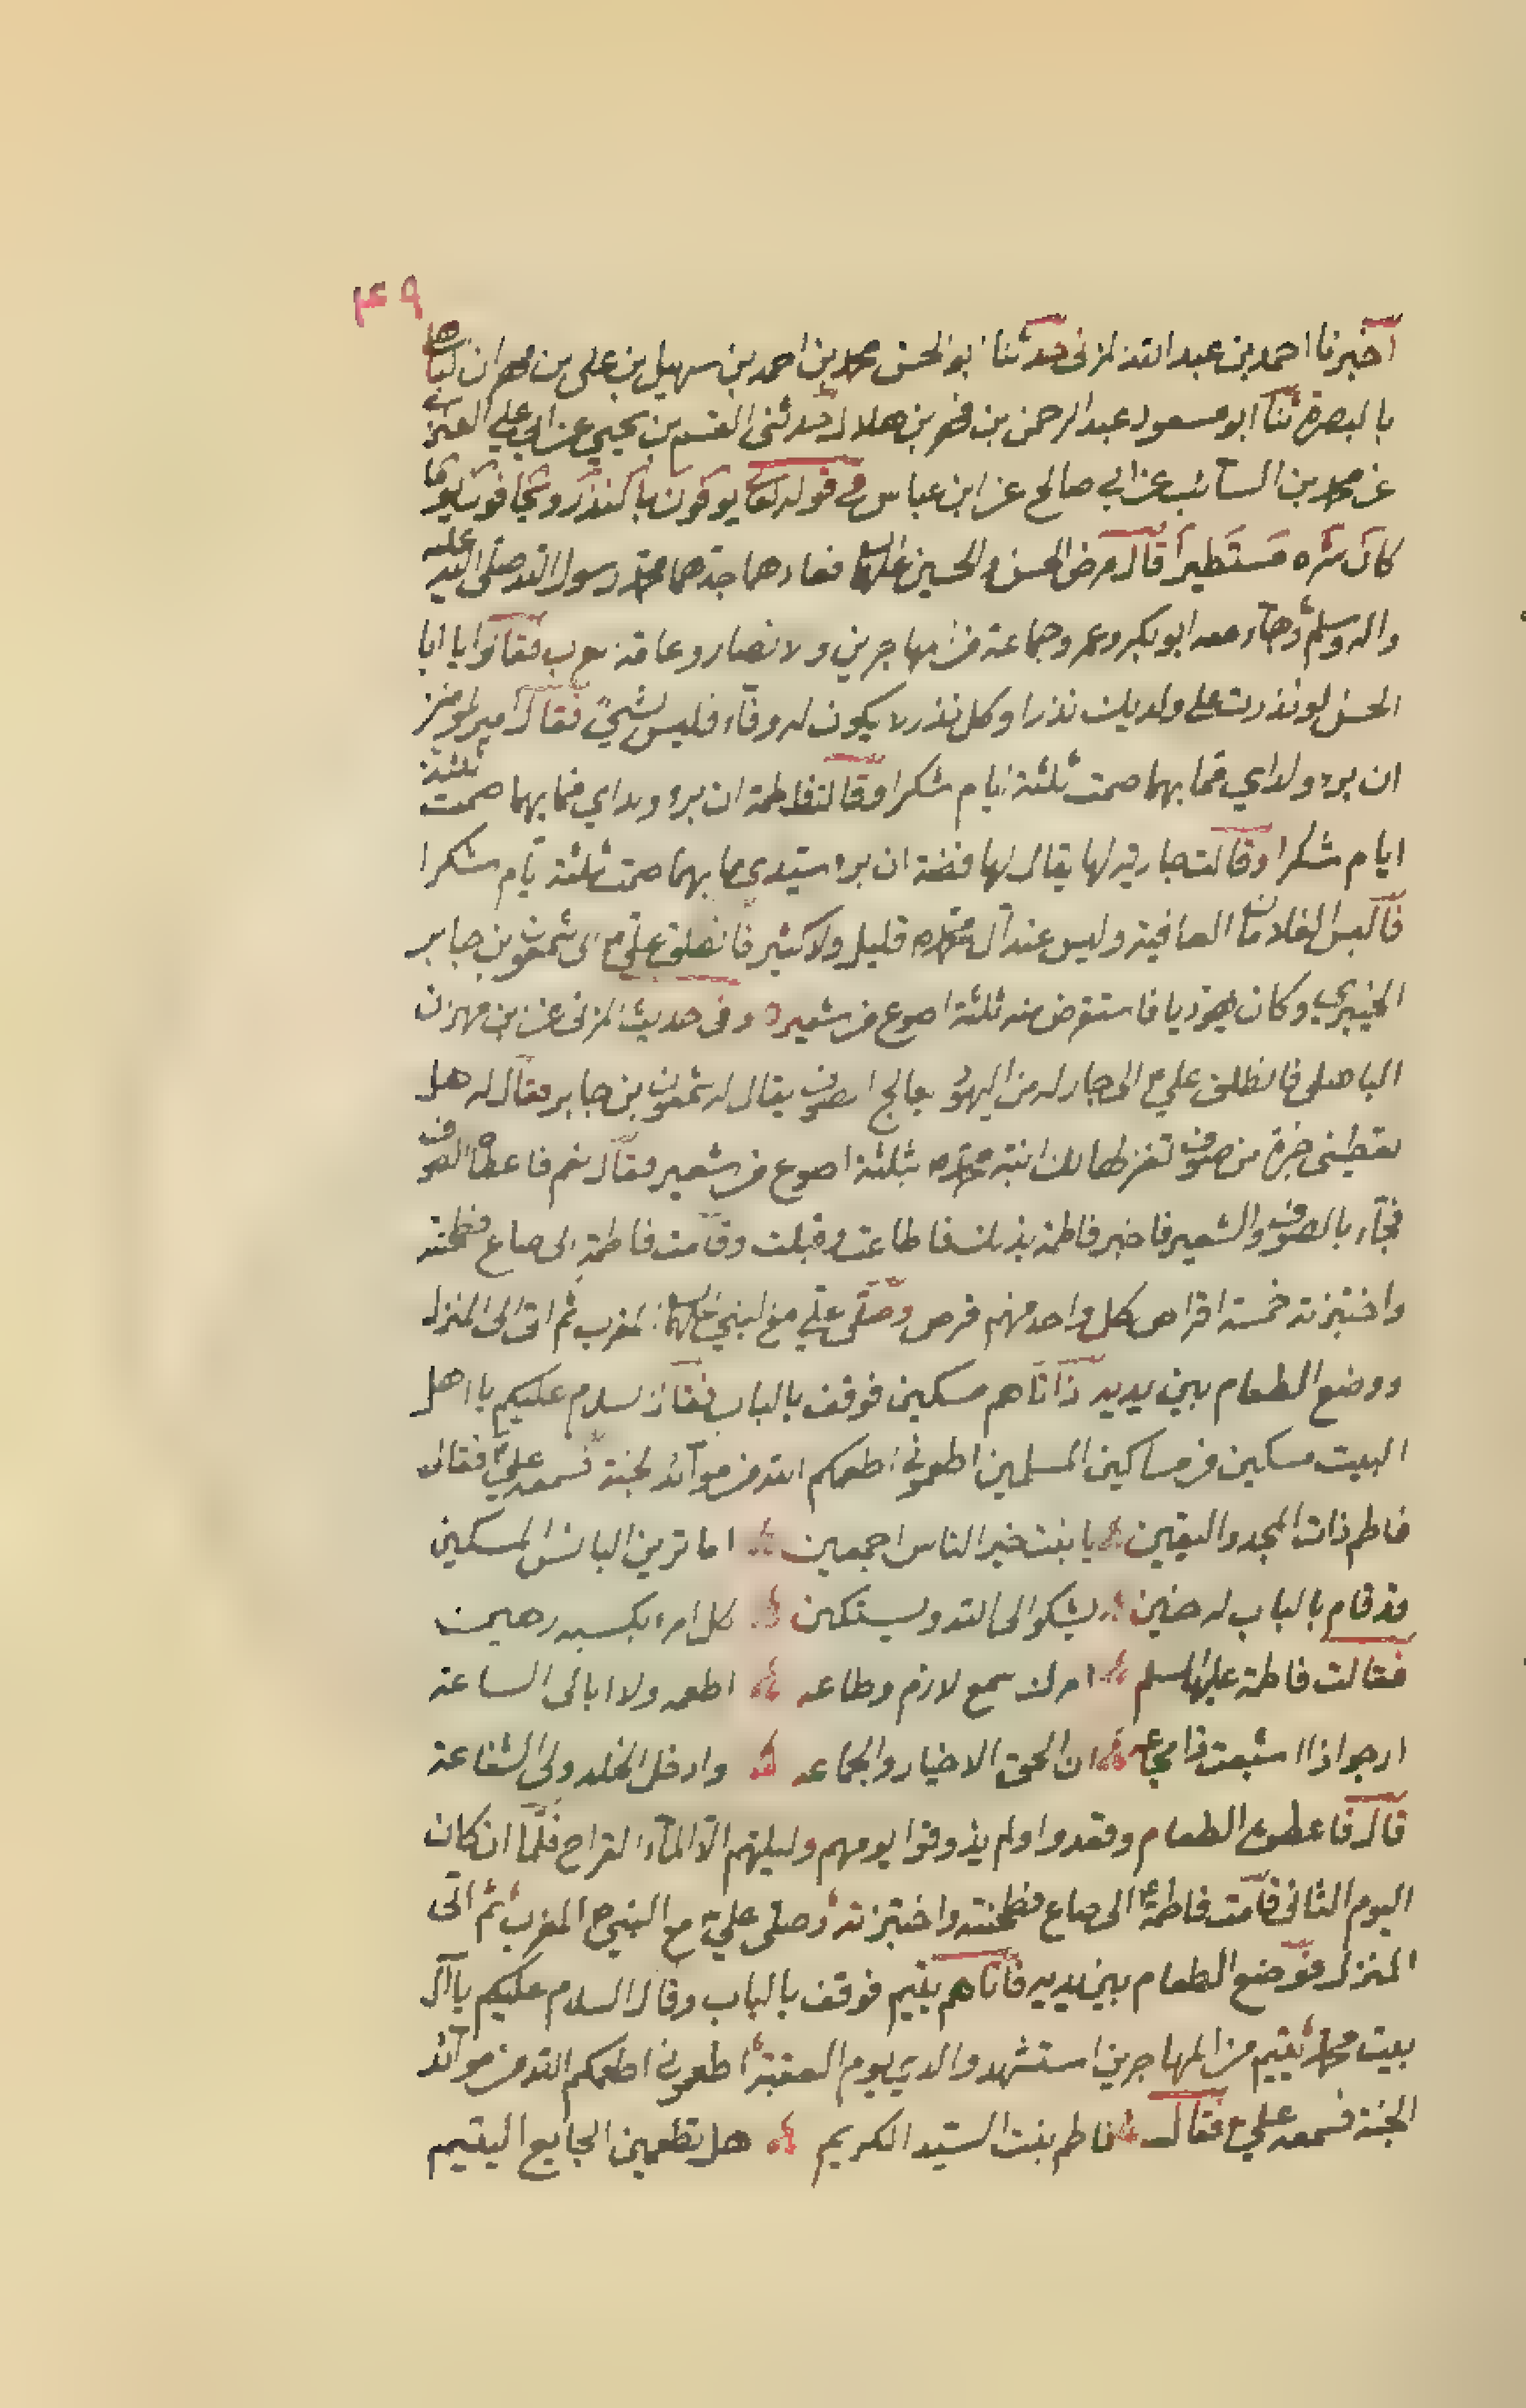 ٤٩
اخبرنا احمد بن عبد الله المزنى حدثنا ابو الحسن محمد بن احمد بن سهيل بن على بن مهران الباهلى
بالبصرة ثنا ابو مسعود عبد الرحمن بن فهر بن هلال حدثنى القسم بن يحيى عن ابى على العنزى
عن محمد بن السائب عن ابى صالح عن ابن عباس فى قوله تعا يوفون بالنذر ويخافون يوما
كان شره مستطيرا قال مرض الحسن والحسين عليهما السلام فعادهما جدهما محمد رسول الله صلى الله عليه
واله وسلم وجاء معه ابو بكر وعمر وجماعة من المهاجرين والانصار وعامة العرب فقالوا يا ابا
الحسن لو نذرت على ولديك نذرا وكل نذر لا يكون له وفاء فليس بشئ فقال امير المؤمنين
ان برء ولداي مما بهما صمت ثلثة ايام شكرا وقالت فاطمة ان برء ولداي مما بهما صمت ثلثة
ايام شكرا وقالت جارية لها يقال لها فضة ان برء سيداى مما بهما صمت ثلثة ايام شكرا
فالبس الغلامان العافية وليس عند آل محمد قليل ولا كثير فانطلق على الى شمعون بن جابر
الخيبري وكان يهوديا فاستقرض منه ثلثة اصوع من شعير وفى حديث المزنى عن ابن مهران
الباهلى فانطلق على الى جار له من اليهود يعالج الصوف يقال له شمعون بن جابر فقال له هل
تعطينى جزة من صوف تغزلها لك ابنة محمد بثلثة اصوع من شعير فقال نعم فاعطاه الصوف
فجاء بالصوف والشعير فاخبر فاطمة بذلك فاطاعت وقبلت وقامت فاطمة الى صاع فطحنته
واختبزته خمسة اقراص كل واحد منهم قرص وصلى على مع النبى عليهما السلام المغرب ثم اتى الى المنزل
ووضع الطعام بين يديه اذ اتاهم مسكين فوقف بالباب فقال السلام عليكم يا اهل
البيت مسكين من مساكين المسلمين اطعمونى اطعمكم الله من موائد الجنة فسمعه على فقال
فاطم ذات المجد واليقين يا بنت خير الناس اجمعين اما ترين البائس المسكين
قد قام بالباب له حنين يشكو الى الله ويستكين كل امرء بكسبه رهين
فقالت فاطمة عليها السلم امرك سمع لازم وطاعه اطعمه ولا ابالى الساعة
ارجو اذا اشبعت ذا مجاعه ان الحق الاخيار والجماعه وادخل الخلد ولى الشفاعة
قال فاعطوه الطعام وقعدوا ولم يذوقوا يومهم وليلتهم الا الماء القراح فلما ان كان
اليوم الثانى قامت فاطمة الى صاع فطحنته واختبزته وصلى على مع النبى المغرب ثم اتى
المنزل فوضع الطعام بين يديه فاتاهم يتيم فوقف بالباب وقال السلام عليكم يا آل
بيت محمد يتيم من المهاجرين استشهد والدي يوم العقبة اطعمونى اطعمكم الله من موائد
الجنة فسمعه على فقال فاطم بنت السيد الكريم هل تطعمين الجايع اليتيم